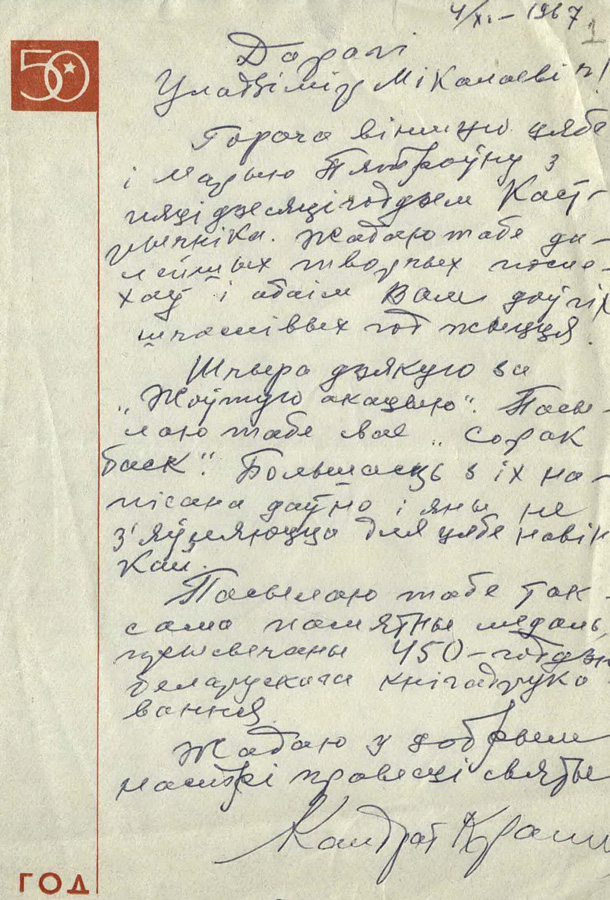 4/XI. – 1967
1
50
Дарагі
Уладзімір Мікалаевіч!
Горача віншую цябе
і Марыю Пятроўну з
пяцідзесяцігоддзем Каст-
рычніка. Жадаю табе да-
лейшых творчых поспе-
хаў і абаім Вам доўгіх
шчаслівых год жыцця.
Шчыра дзякую за
„Жоўтую акацыю“. Пасы-
лаю табе свае „Сорак
баек“. Большасць з іх на-
пісана даўно і яны не
з'яўляюцца для цябе навін
кай.
Пасылаю табе так-
сама памятны медаль,
прысвечаны 450-годдзю
беларускага кнігадрука
вання.
Жадаю у добрым
настрі правесці святы
Кандрат Крапі
ГОД